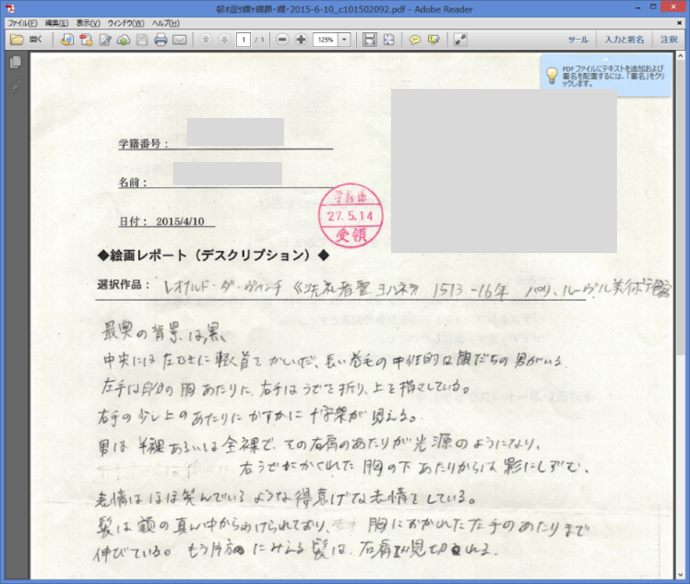 -2015-6-10_c101502092.pdf - Adobe Reader
ファイル(F) 編集(E) 表示(V) ウィンドウ(W) ヘルプ(H)
開く 1 / 1 125% ツール 入力と署名 注釈
PDF ファイルにテキストを追加および
署名を配置するには、「署名」をクリ
ックします。
学籍番号：
名前：
日付： 2015/4/10
27.5.14
受領
◆絵画レポート（デスクリプション）◆
選択作品： レオナルド・ダ・ヴィンチ 《洗礼者聖ヨハネ》 1513-16年 パリ、ルーヴル美術館
最奥の背景は黒、
中央には左むきに軽く首をかしいだ、長い巻毛の中性的な顔だちの男がいる
左手は自分の胸あたりに、右手はうでを折り、上を指さしている。
右手の少し上のあたりにかすかに十字架が見える。
男は半裸あるいは全裸で、その右肩のあたりが光源のようになり、
右うでにかくれた胸の下あたりからは影にしずむ、
表情はほほ笑んでいるような得意げな表情をしている。
髪は額の真ん中からわけられており、胸におかれた左手のあたりまで
伸びている。もう片方にみえる髪は、右肩で見切れる。